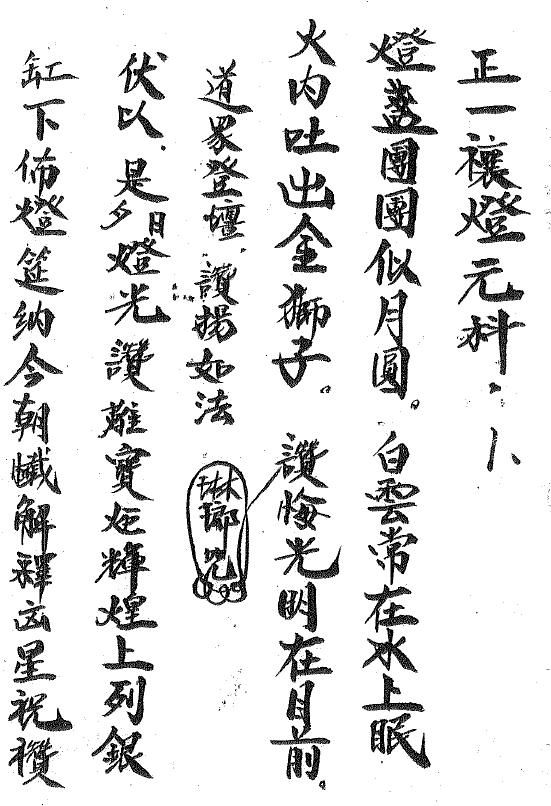 正一禳燈元科。卜
燈盞團團似月圓。白雲常在水上眠
火内吐出金獅子。讚悔光明在目前。
道眾登壇.讚揚如法
琳瑯咒
伏以.是夕日燈光讚離寶炬輝煌上列銀
缸下佈燈筵納今朝懺解釋凶星祝讚